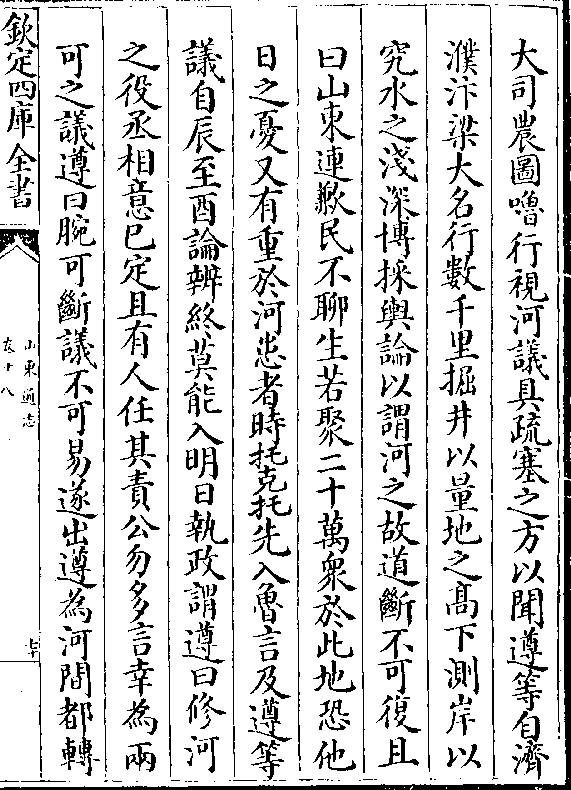 大司農圖嚕行視河議具疏塞之方以聞遵等自濟
濮汴梁大名行數千里掘井以量地之髙下測岸以
究水之淺深博採輿論以謂河之故道斷不可復且
曰山東連歉民不聊生若聚二十萬衆於此地恐他
日之憂又有重於河患者時托克托先入魯言及遵等
議自辰至酉論辨終莫能入明日執政謂遵曰修河
之役丞相意已定且有人任其責公勿多言幸為兩
可之議遵曰腕可斷議不可易遂出遵為河間都轉
欽定四庫全書
山東通志
卷十八